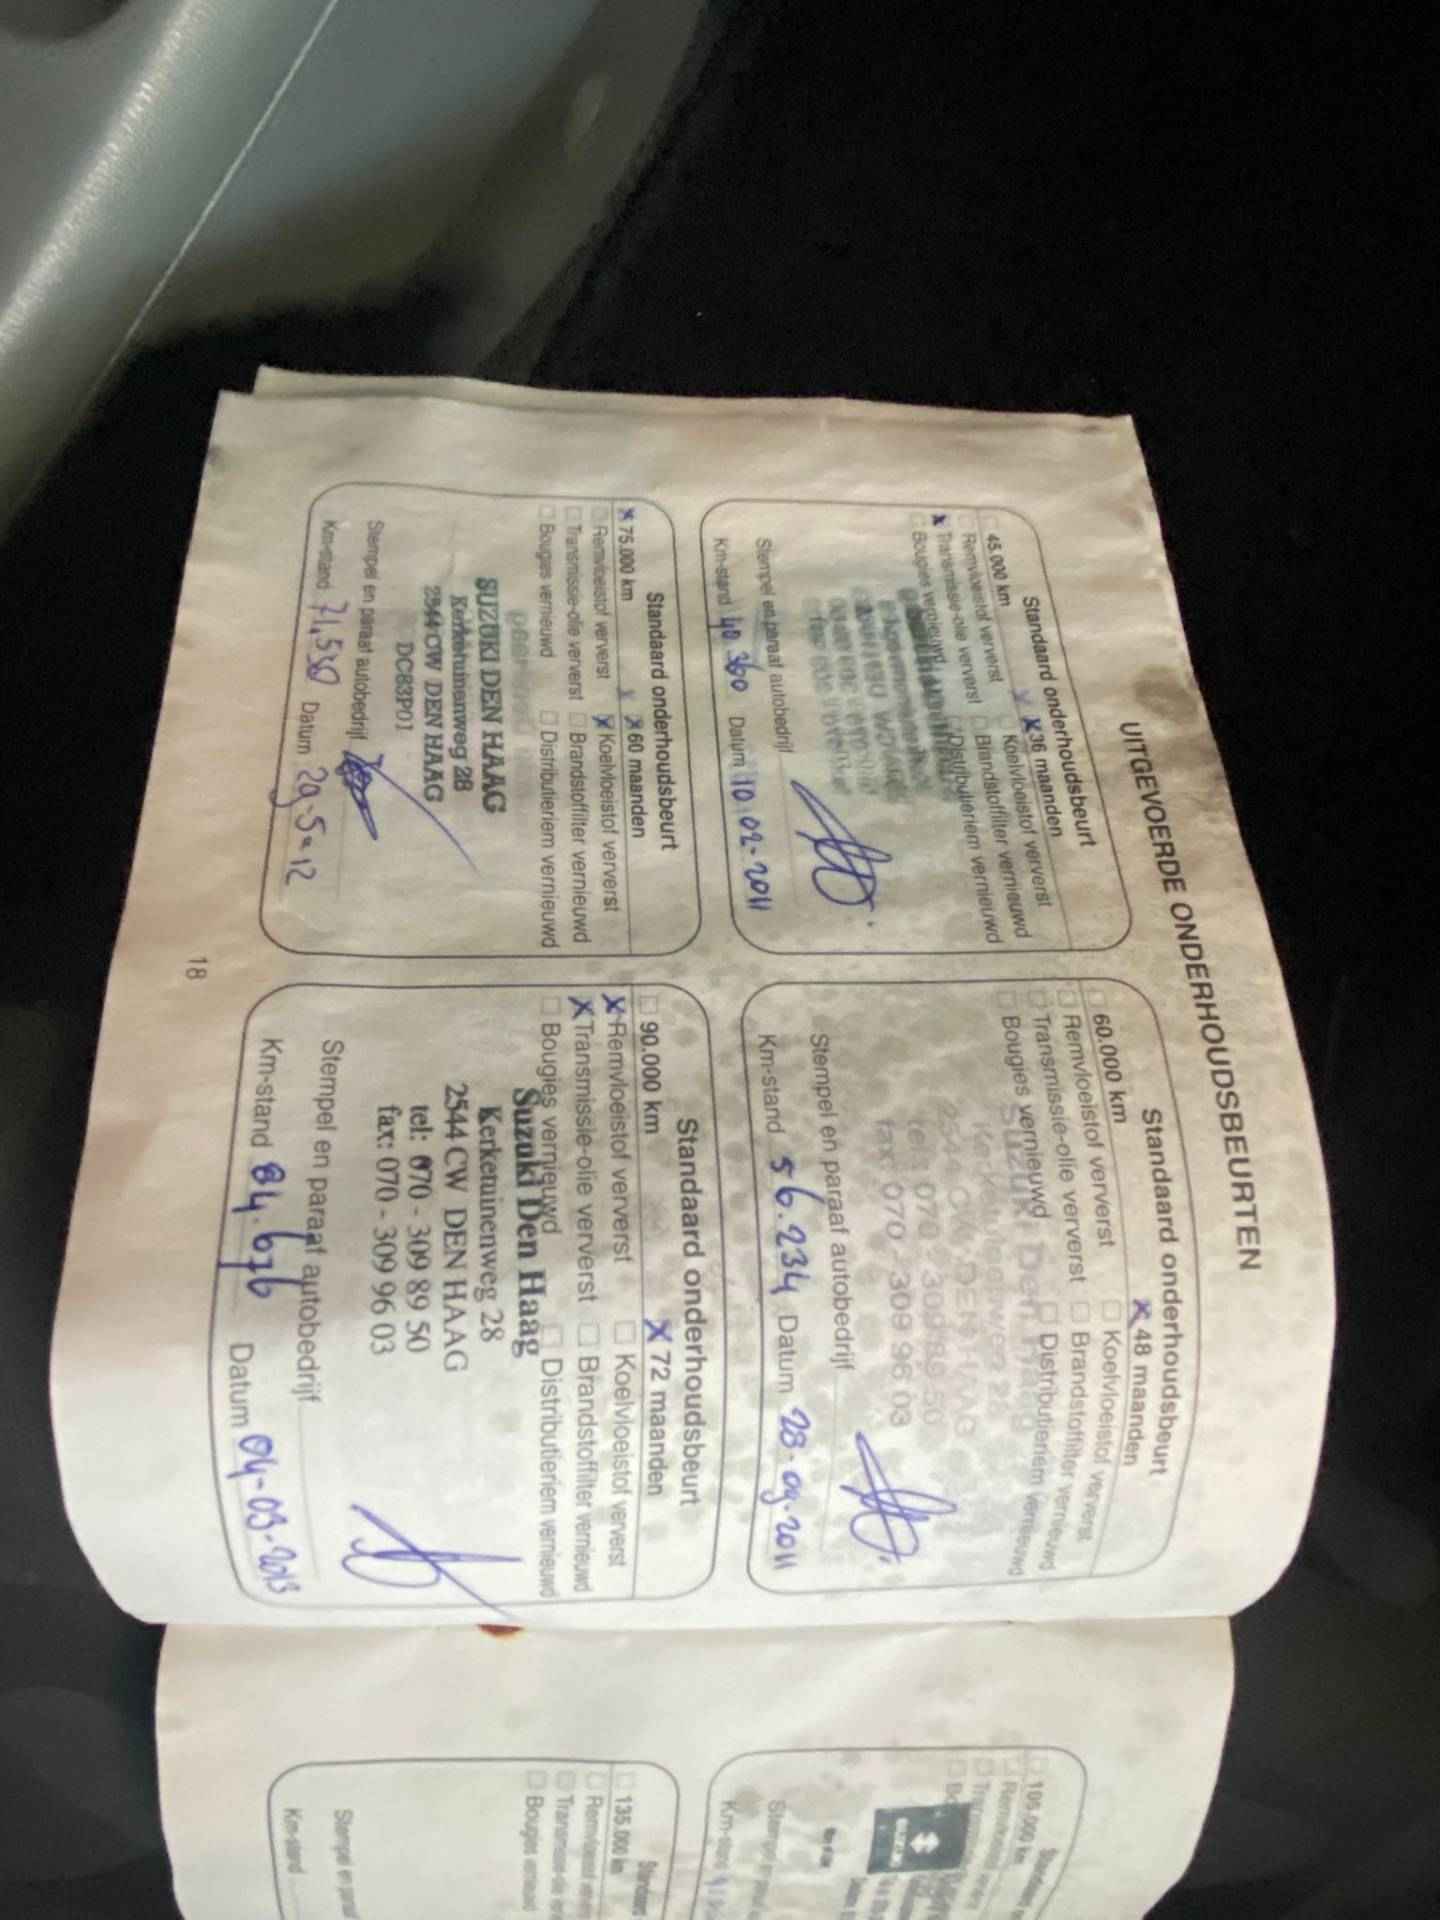 UITGEVOERDE ONDERHOUDSBEURTEN
Standaard onderhoudsbeurt
45.000 km x 36 maanden
Remvloeistof ververst Koelvloeistof ververst
x Transmissie-olie ververst Brandstoffilter vernieuwd
Bougies vernieuwd Distributieriem vernieuwd
Stempel en paraaf autobedrijf
Km-stand 40 360 Datum 10.02-2011
Standaard onderhoudsbeurt
60.000 km x 48 maanden
Remvloeistof ververst Koelvloeistof ververst
Transmissie-olie ververst Brandstoffilter vernieuwd
Bougies vernieuwd Distributieriem vernieuwd
Suzuki Den Haag
Kerketuinenweg 28
2544 CW DEN HAAG
tel: 070 - 309 89 50
fax: 070 - 309 96 03
Stempel en paraaf autobedrijf
Km-stand 56.234 Datum 28-09-2011
Standaard onderhoudsbeurt
x 75.000 km x 60 maanden
Remvloeistof ververst x Koelvloeistof ververst
Transmissie-olie ververst Brandstoffilter vernieuwd
Bougies vernieuwd Distributieriem vernieuwd
SUZUKI DEN HAAG
Kerketuinenweg 28
2544 CW DEN HAAG
DC83P01
Stempel en paraaf autobedrijf
Km-stand 71.530 Datum 29-5-12
Standaard onderhoudsbeurt
90.000 km x 72 maanden
x Remvloeistof ververst Koelvloeistof ververst
x Transmissie-olie ververst Brandstoffilter vernieuwd
Bougies vernieuwd Distributieriem vernieuwd
Suzuki Den Haag
Kerketuinenweg 28
2544 CW DEN HAAG
tel: 070 - 309 89 50
fax: 070 - 309 96 03
Stempel en paraaf autobedrijf
Km-stand 84.676 Datum 04-03-2013
18
105.000 km
135.000 km
Remvloeistof
Bougies vernieuwd
Stempel en paraaf
Km-stand